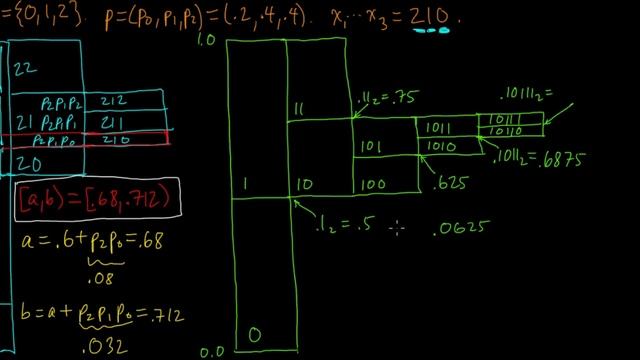 ={0,1,2}. p=(p₀,p₁,p₂)=(.2,.4,.4). x₁⋯x₃=210.
22
p₂p₁p₂ 212
21 p₂p₁p₁ 211
p₂p₁p₀ 210
20
[a,b)=[.68,.712)
a=.6+p₂p₀=.68
.08
b=a+p₂p₁p₀=.712
.032
1.0
11
1
10
0
0.0
101
100
1011
1010
10111
10110
.11₂=.75
.10111₂=
.1011₂=.6875
.625
.1₂=.5
.0625